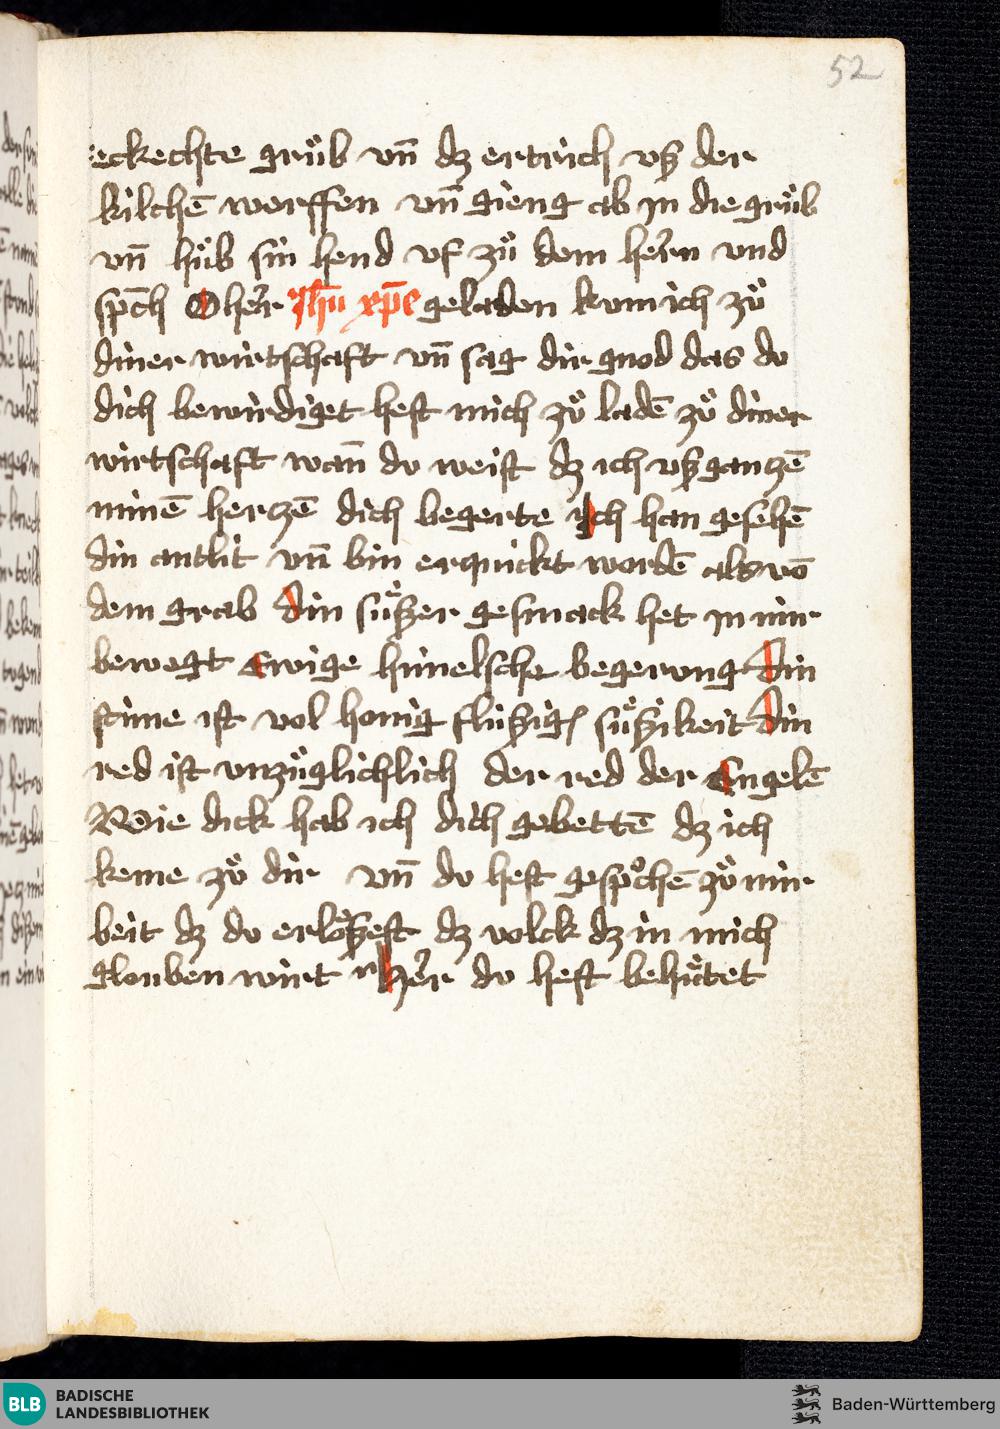 52
eckechte grůb vn̄ dz ertrich vß der
kilchē werffen vn̄ gieng ab jn die grůb
vn̄ hůb sin hend vf zů dem hern vnd
spch̄ O her Jhū xp̄e geladen kom ich zů
diner wirtschaft vn̄ sag dir gnod das do
dich bewirdiget hest mich zů ladē zů diner
wirtschaft wan̄ do weist dz ich vß ganczē
minē herczē dich begerte Ich han gesehē
din antlit vn̄ bin erquickt wordē als vō
dem grab Din sůßer gesmack het jn mir
bewegt Ewige himelsche begerung Din
stime ist vol honig flüßig sůßikeit Din
red ist vnzüglichlich der red der Engelē
Wie dick hab ich dich gebettē dz ich
keme zů dir vn̄ do hest gespͦchē zů mir
beit dz do erlößest dz volck dz in mich
glouben wirt Her do hest behütet
BLB
BADISCHE
LANDESBIBLIOTHEK
Baden-Württemberg